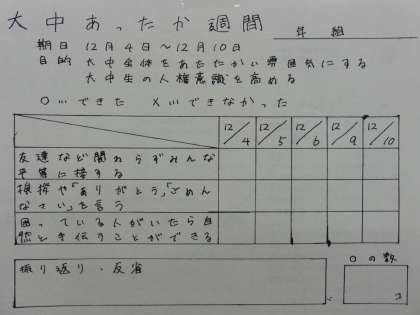 大中あったか週間
年 組
期日 12月4日～12月10日
目的 大中全体をあたたかい雰囲気にする
大中生の人権意識を高める
○…できた ×…できなかった
12/4 12/5 12/6 12/9 12/10
友達など関わらずみんな
平等に接する
挨拶や「ありがとう」「ごめん
なさい」を言う
困っている人がいたら自
然と手伝うことができる
振り返り・反省
○の数
コ